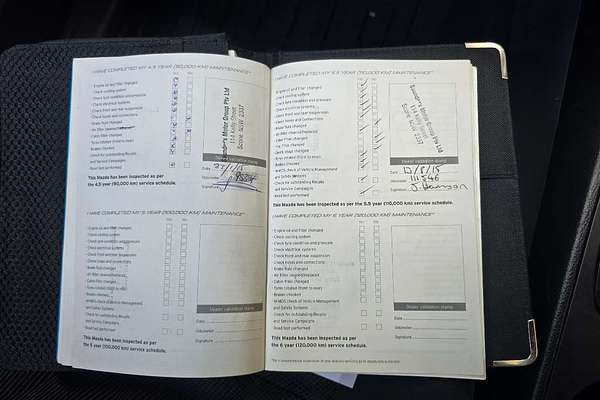 "I HAVE COMPLETED MY 4.5 YEAR (90,000 KM) MAINTENANCE"
Engine oil and filter changed
Check cooling system
Check tyre condition and pressure
Check electrical systems
Check front and rear suspension
Check hoses and connections
Brake fluid changed
Cabin filter changed
Tyres rotated (front to rear)
Brakes checked
Check for outstanding Recalls
and Service Campaigns
Road test performed
This Mazda has been inspected as per
the 4.5 year (90,000 km) service schedule.
Motor Group Pty Ltd
114 Kelly Street
Scone NSW 2337
Dealer validation stamp
Date
Odometer
Signature
"I HAVE COMPLETED MY 5 YEAR (100,000 KM) MAINTENANCE"
Engine oil and filter changed
Check cooling system
Check tyre condition and pressure
Check electrical systems
Check front and rear suspension
Check hoses and connections
Brake fluid changed
Air filter cleaned/replaced
Cabin filter changed
Tyres rotated (front to rear)
Brakes checked
M-MDS check of Vehicle Management
and Safety Systems
Check for outstanding Recalls
and Service Campaigns
Road test performed
This Mazda has been inspected as per
the 5 year (100,000 km) service schedule.
Dealer validation stamp
Date
Odometer
Signature
"I HAVE COMPLETED MY 5.5 YEAR (110,000 KM) MAINTENANCE"
Engine oil and filter changed
Check cooling system
Check tyre condition and pressure
Check electrical systems
Check front and rear suspension
Check hoses and connections
Brake fluid changed
Air filter cleaned/replaced
Tyres rotated (front to rear)
Brakes checked
M-MDS check of Vehicle Management
and Safety Systems
Check for outstanding Recalls
and Service Campaigns
Road test performed
This Mazda has been inspected as per the 5.5 year (110,000 km) service schedule.
Motor Group Pty Ltd
Scone NSW 2337
Dealer validation stamp
Date 12/8/15
Odometer 111546
Signature
"I HAVE COMPLETED MY 6 YEAR (120,000 KM) MAINTENANCE"
Engine oil and filter changed
Check cooling system
Check tyre condition and pressure
Check electrical systems
Check front and rear suspension
Check hoses and connections
Brake fluid changed
Air filter cleaned/replaced
Cabin filter changed
Tyres rotated (front to rear)
Brakes checked
M-MDS check of Vehicle Management
and Safety Systems
Check for outstanding Recalls
and Service Campaigns
Road test performed
This Mazda has been inspected as per
the 6 year (120,000 km) service schedule.
Dealer validation stamp
Date
Odometer
Signature